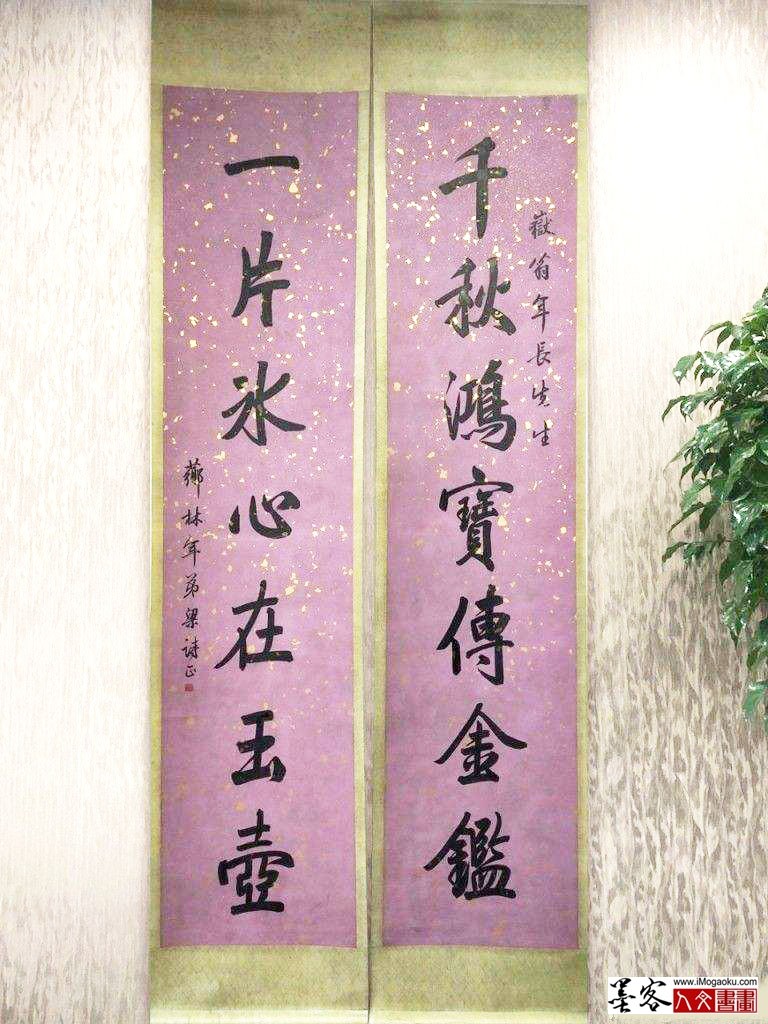 嶽翁年長先生
千秋鴻寶傳金鑑
一片冰心在玉壺
薌林年弟梁詩正
墨客
www.iMogaoku.com
人文書畫